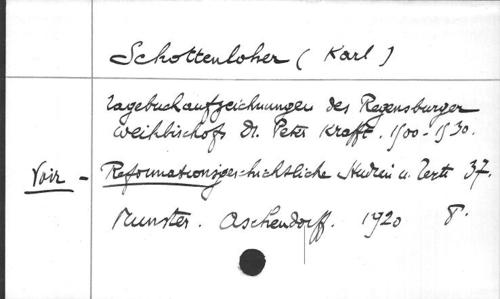 Schottenloher (Karl)
Tagebuchaufzeichnungen des Regensburger
Weihbischofs Dr. Peter Krafft. 1500-1530.
Voir - Reformationsgeschichtliche Studien u. Texte 37.
Munster. Aschendorff. 1920 8°.